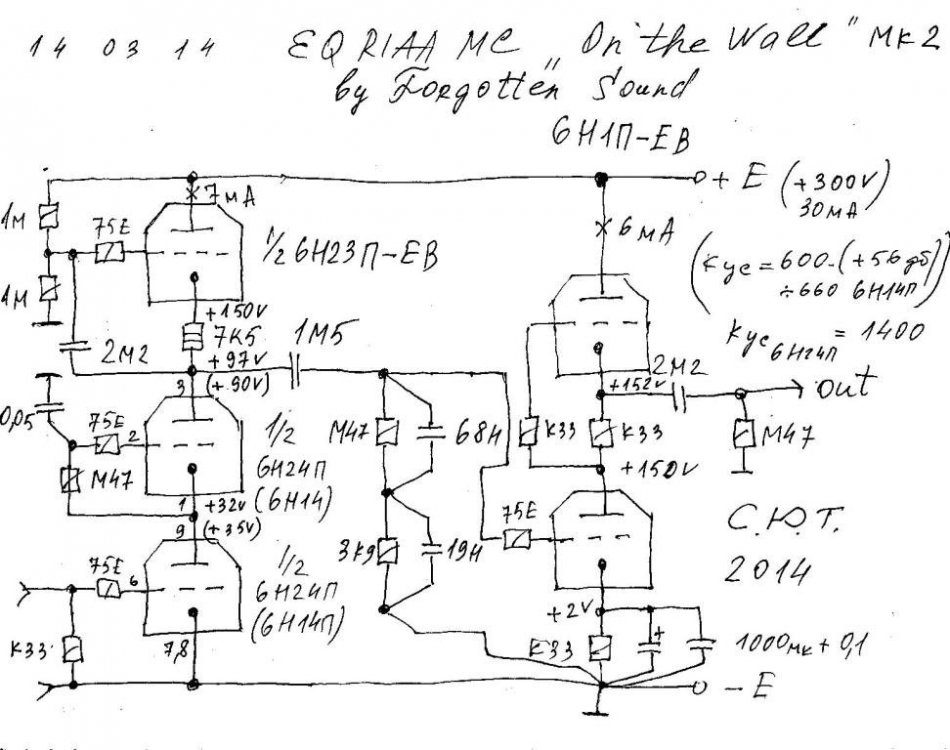 14 03 14 EQ RIAA MC „On the Wall" MK2
by Forgotten Sound
6Н1П-ЕВ
+ E (+300V)
30мА
7мА
6мА
1м
75E
1/2 6Н23П-ЕВ
(Кус = 600 (+56дб)
÷660 6Н14П)
1м
+150V
7К5
1М5
Кус 6Н24П = 1400
2м2
+97V
(+90V)
3
2М2
+152V
out
0,05
75E
2
М47
1/2
6Н24П
(6Н14)
М47
68Н
К33
К33
М47
+150V
1
+32V
(+35V)
9
75E
С.Ю.Т.
2014
3К9
19Н
75E
6
1/2
6Н24П
(6Н14П)
+2V
К33
7,8
К33
+
1000мк + 0,1
- E